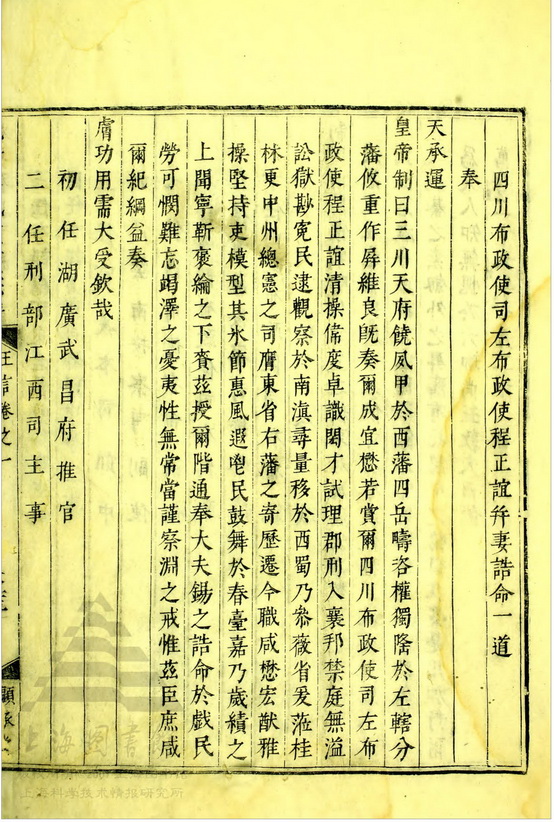 四川布政使司左布政使程正誼幷妻誥命一道
奉
天承運
皇帝制曰三川天府饒夙甲於西藩四岳疇咨權獨隆於左轄分
藩攸重作屏維良旣奏爾成宜懋若賞爾四川布政使司左布
政使程正誼清操偉度卓識閎才試理郡刑入襄邦禁庭無溢
訟獄尠冤民逮觀察於南滇尋量移於西蜀乃叅薇省爰蒞桂
林更中州總憲之司膺東省右藩之寄歷遷今職咸懋宏猷雅
操堅持吏模型其氷節惠風遐鬯民鼓舞於春臺嘉乃歲績之
上聞寧靳褒綸之下賚茲授爾階通奉大夫錫之誥命於戲民
勞可憫難忘竭澤之憂夷性無常當謹察淵之戒惟茲臣庶咸
爾紀綱益奏
膚功用需大受欽哉
初任湖廣武昌府推官
二任刑部江西司主事
卷之一
上海圖書
上海科学技术情报研究所